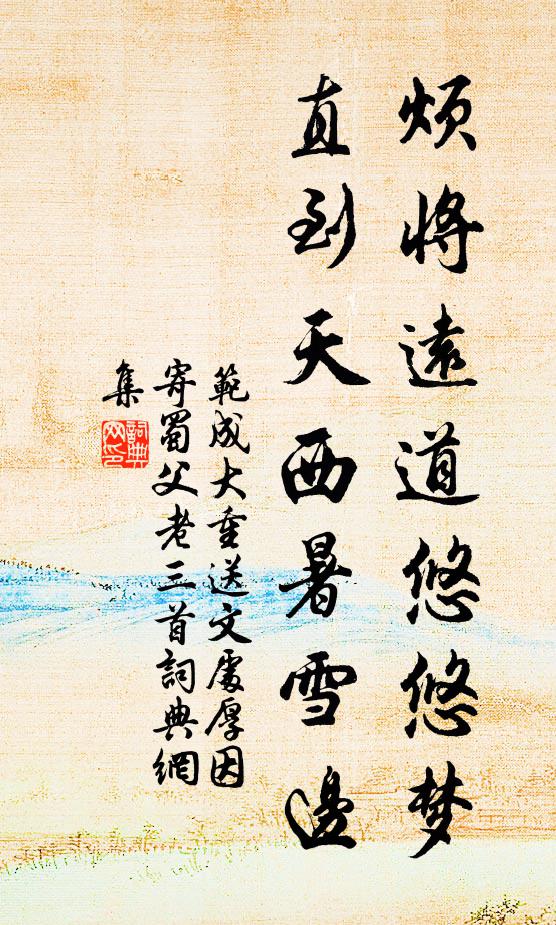 烦将遠道悠悠梦
直到天西暑雪邊
範成大重送文處厚因
寄蜀父老三首詞典網
集
詞典网印